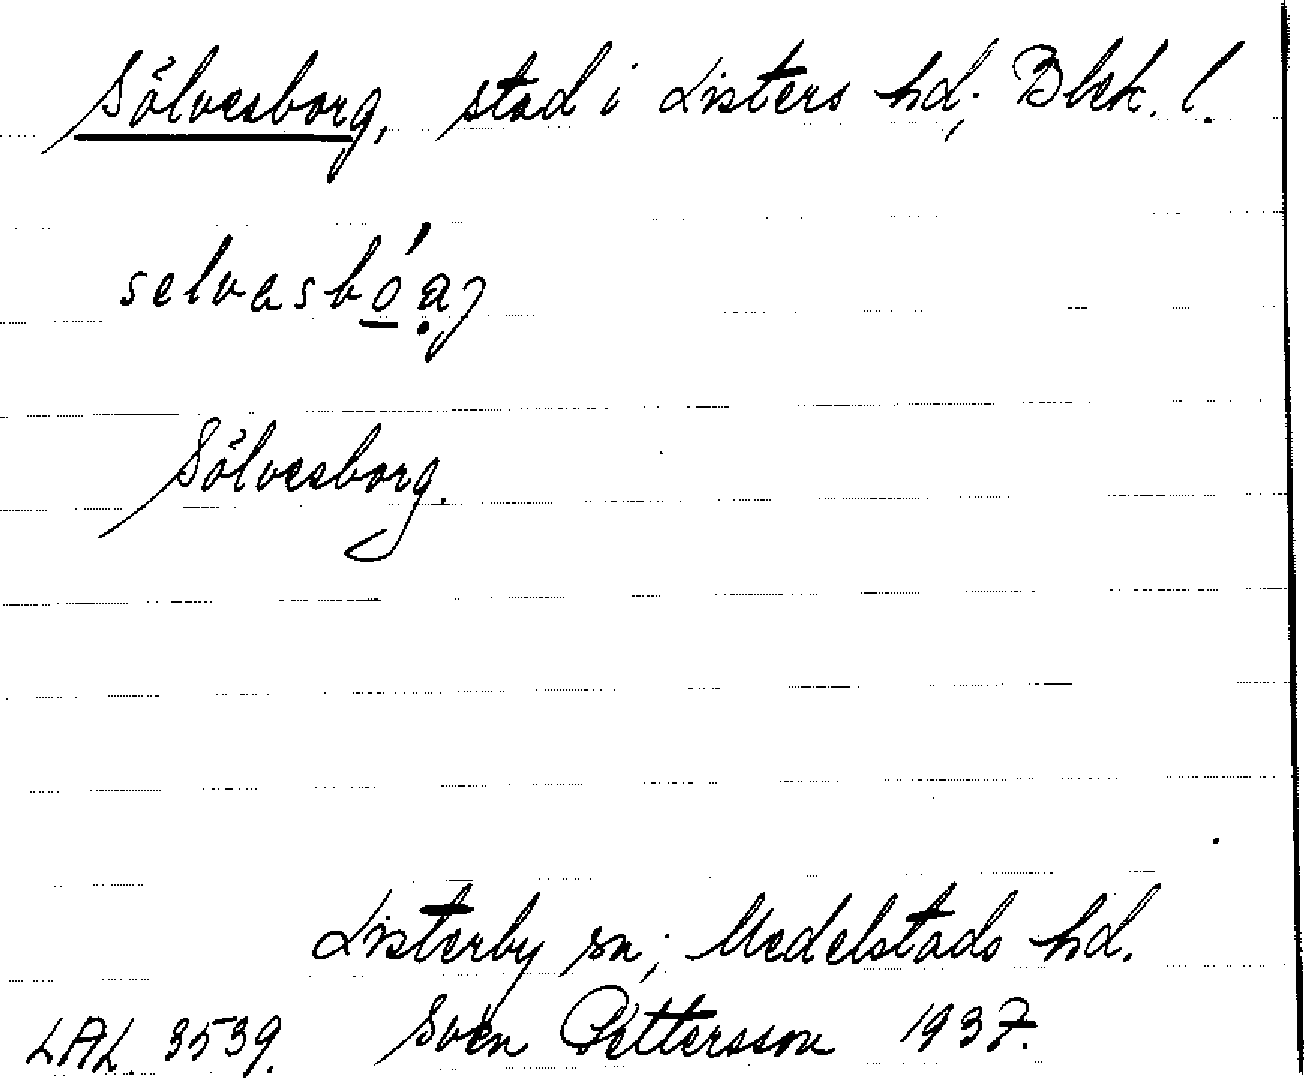 Sölvesborg, stad i Listers hd; Blek. l.
selvasbóaj
Sölvesborg.
Listerby sn; Medelstads hd.
LAL. 3539. Sven Pettersson 1937.